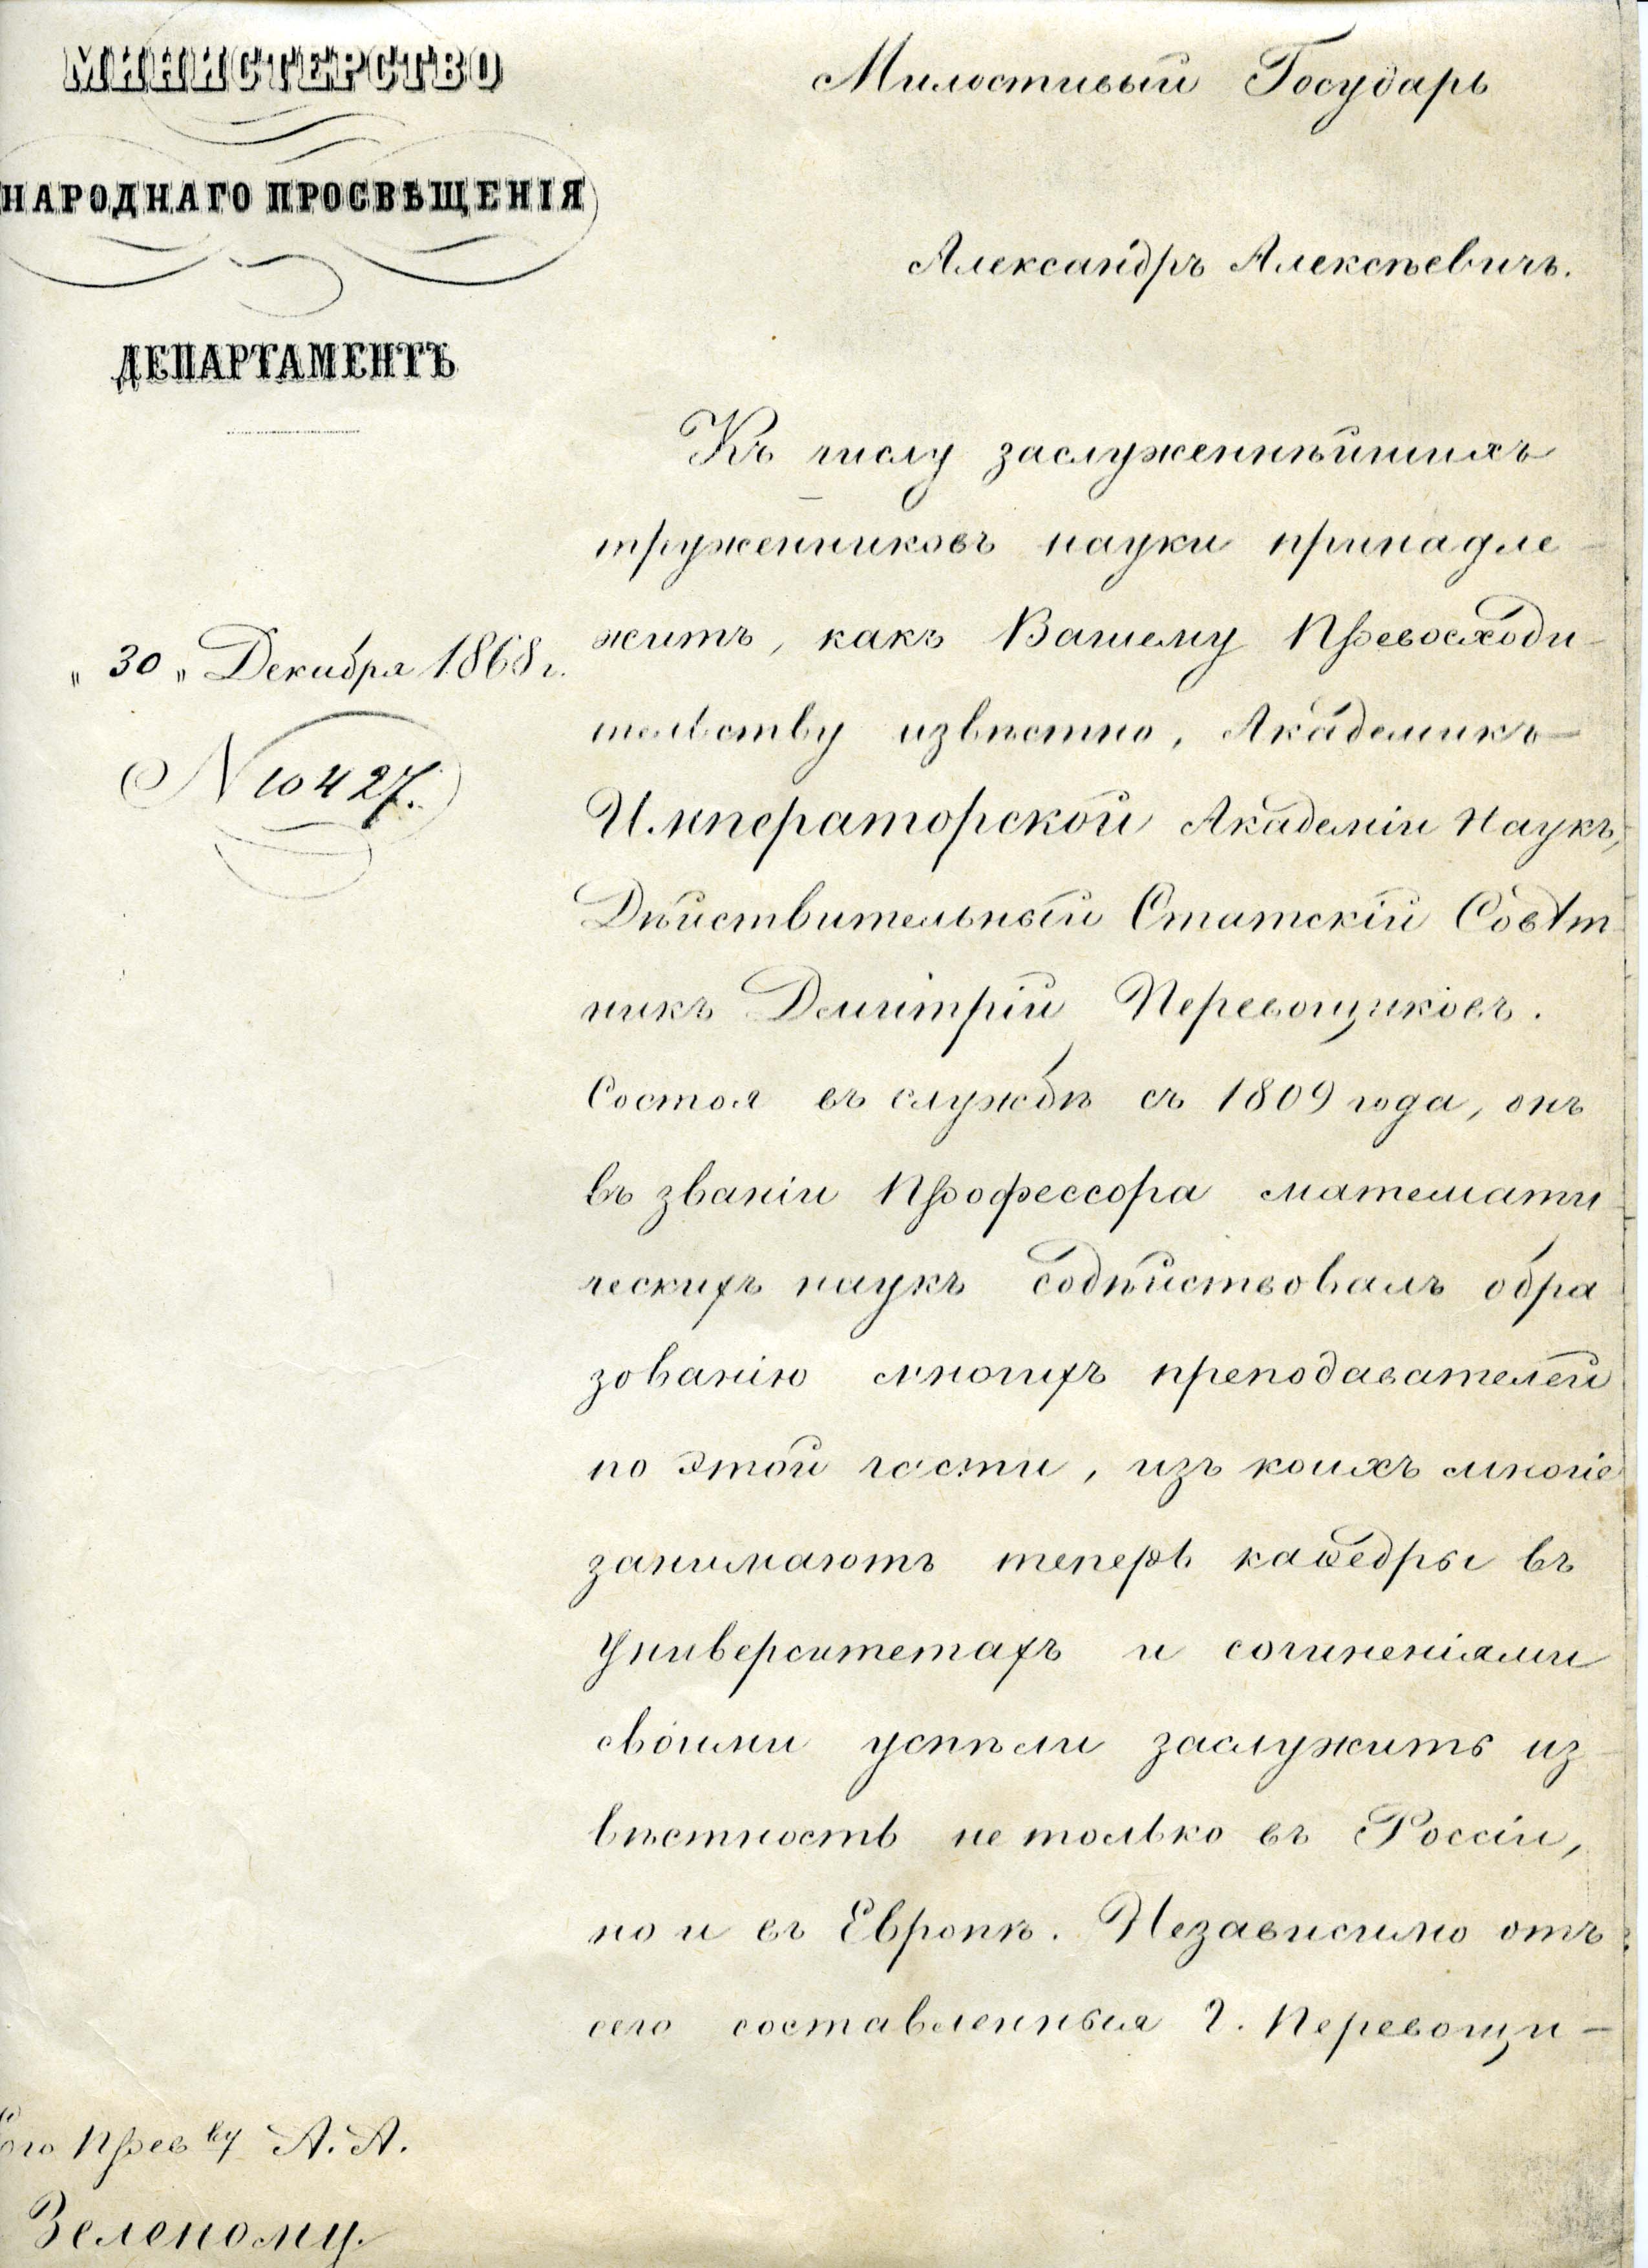 МИНИСТЕРСТВО
НАРОДНАГО ПРОСВѢЩЕНІЯ
ДЕПАРТАМЕНТЪ
„ 30 „ Декабря 1868 г.
N 10427.
Милостивый Государь
Александръ Алексѣевичъ.
Къ числу заслуженнѣйшихъ
труженниковъ науки принадле-
житъ, какъ Вашему Превосходи-
тельству извѣстно, Академикъ
Императорской Академіи Наукъ,
Дѣйствительный Статскій Совѣт-
никъ Дмитрій Перевощиковъ.
Состоя въ службѣ съ 1809 года, онъ
въ званіи Профессора математи
ческихъ наукъ содѣйствовалъ обра
зованію многихъ преподавателей
по этой части, изъ коихъ многіе
занимаютъ теперь каѳедры въ
Университетахъ и сочиненіями
своими успѣли заслужить из-
вѣстность не только въ Россіи,
но и въ Европѣ. Независимо отъ
сего составленныя Г. Перевощи-
Его Прев ву А. А.
Зеленому.